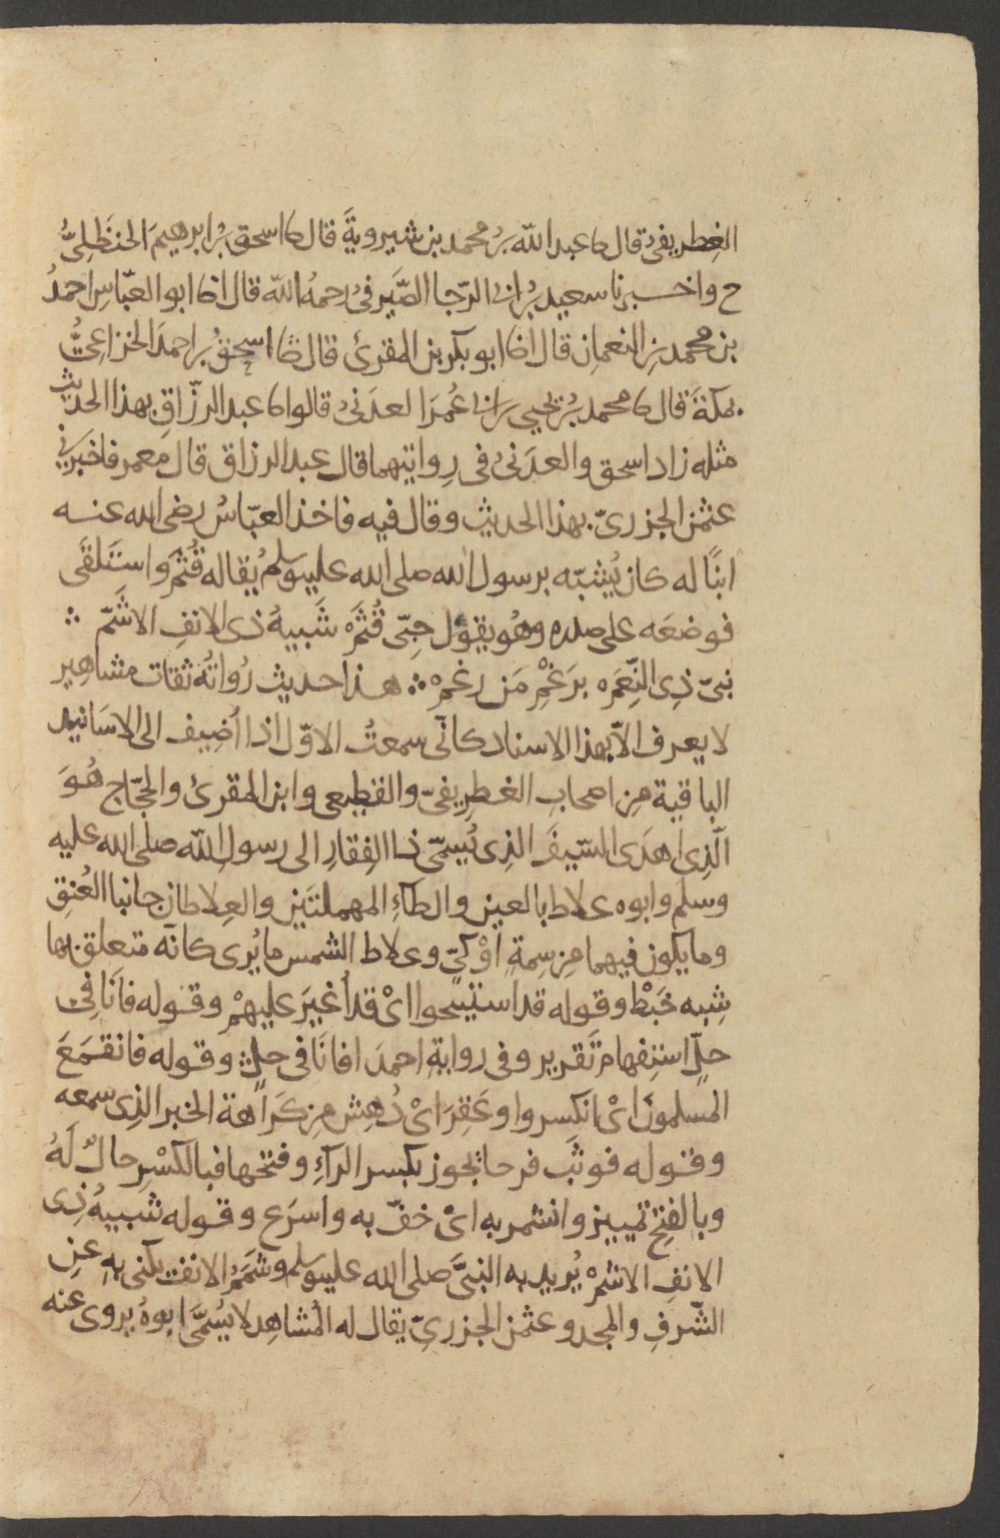 الغِطريفىُ قال نا عبد الله بنُ محمد بن شيرويةَ قال نا اسحق بنُ ابرهيمَ الحنظَلِىُّ
ح واخبرنا سعيد بنُ ابى الرّجا الصَّيرفىُ رحمهُ الله قال انا ابو العبّاسِ احمدُ
بن محمد بن النعمانِ قال انا ابو بكر بن المقرئ قال ثنا اسحقُ بن احمدَ الخزاعِىُّ
بمكةَ قال نا محمد بنُ يحيى بن ابى عُمرَ العدَنىُ قالوا نا عبد الرزّاقِ بهذا الحديث
مثله زاد اسحق والعدَنىُ فى رِوايتهما قال عبد الرزاق قال معمر فاخبرَنى
عثمن الجزرىّ بهذا الحديث وقال فيه فاخذ العبّاسُ رضى الله عنه
ابنًا له كان يُشبّه برسول الله صلى الله عليه وسلم يُقال له قُثَمَ واستَلقَى
فوضعَه على صدره وهُو يقوُل حِبّى قُثَمْ شَبيهُ ذى الانفِ الاشَمّ ∴
نبىّ ذِى النِّعَمِ برَغْمِ مَن رغمْ ∴ هذا حديث رُواتُه ثقات مشاهِير
لا يعرف الّا بهذا الاسناد كانّى سمعتُ الاوّل اذا أُضِيف الى الاسَانيد
الباقية مِن اصحابِ الغطرِيفىّ والقطيعى وابن المقرئ والحجّاج هُوَ
الّذِى اهدَى السّيفَ الذِى يُسمّى ذا الفِقَارِ الى رسول الله صلى الله عليه
وسلم وابوه علاط بالعين والطآءِ المهملتَين والعِلاطان جانبا العُنقِ
وما يكون فيهما مِن سِمةٍ اوْ كىّ وعلاط الشمس ما يُرى كانّه متعلق بها
شِبه خَيْط وقوله قد استُبيحوا اىْ قد أُغيرَ عليهِمْ وقوله فانَا فِى
حلٍّ استِفهام تَقرير وفى روايةِ احمدَ افانَا فى حلٍّ وقوله فانقمَعَ
المسلمونَ اىْ انكسروا وعَقِرَ اىْ دُهِش مِن كَراهة الخبر الذِى سمعه
وقوله فوثَب فرحا يجوز بكسر الرآءِ وفتحها فبالكسْرِ حالٌ لَهُ
وبالفتحِ تمييز وانشمر به اىْ خفّ به واسرَع وقوله شبيهُ ذِى
الانفِ الاشمّ يُريد به النبىَّ صلى الله عليه وسلم وشَمَمُ الانف يكنى بهِ عنِ
الشّرفِ والمجد وعثمن الجزرىّ يقال له المُشاهِد لا يُسمَّى ابوهُ يروى عنه